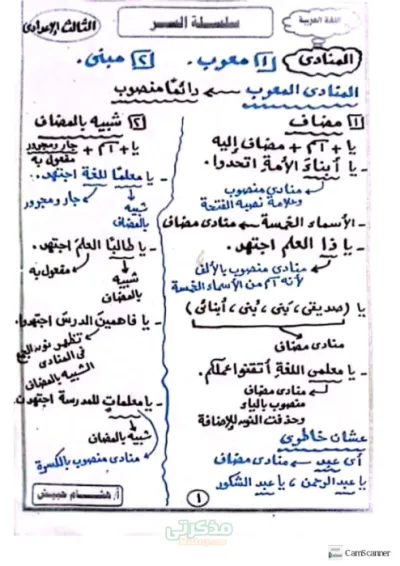 اللغة العربية
سلسلة السر
الثالث الإعدادى
المنادى
١ معرب .
٢ مبنى .
المنادى المعرب ← دائمًا منصوب
١ مضاف
يا + اسم + مضاف إليه
- يا أبناء الأمة اتحدوا.
منادى منصوب
وعلامة نصبه الفتحة
- الأسماء الخمسة ← منادى مضاف
- يا ذا العلم اجتهد.
منادى منصوب بالألف
لأنه اسم من الأسماء الخمسة
يا (صديقى، بنى، أبنائى)
منادى مضاف
- يا معلمى اللغة أتقنوا عملكم.
منادى مضاف
منصوب بالياء
وحذفت النون للإضافة
عشان خاطرى
أى عبد ← منادى مضاف
يا عبد الرحمن، يا عبد الشكور
٢ شبيه بالمضاف
يا + اسم + جار ومجرور
مفعول به
- يا معلمًا للغة اجتهد.
شبيه بالمضاف
جار ومجرور
- يا طالبًا العلم اجتهد.
شبيه بالمضاف
مفعول به
- يا فاهمين الدرس اجتهدوا.
تظهر نون
فى المنادى
الشبيه بالمضاف
- يا معلمات للمدرسة اجتهدن.
شبيه بالمضاف
منادى منصوب بالكسرة
أ/ هشام هبيش
١
مذكرتى
CS CamScanner